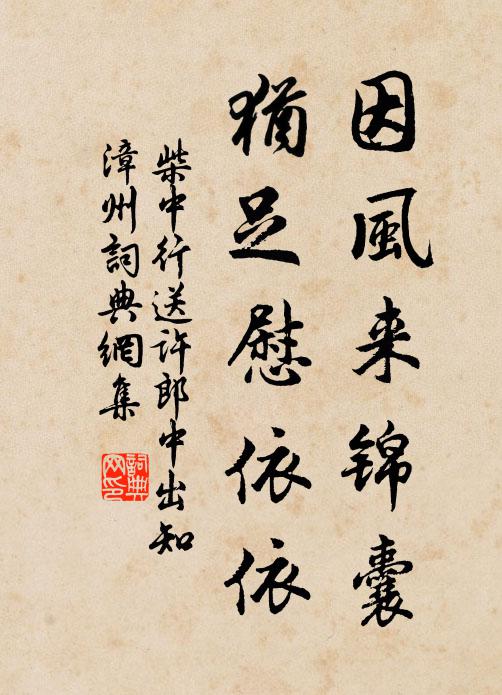 因風来锦囊
猶足慰依依
柴中行送许郎中出知
漳州詞典網集
詞典
网印